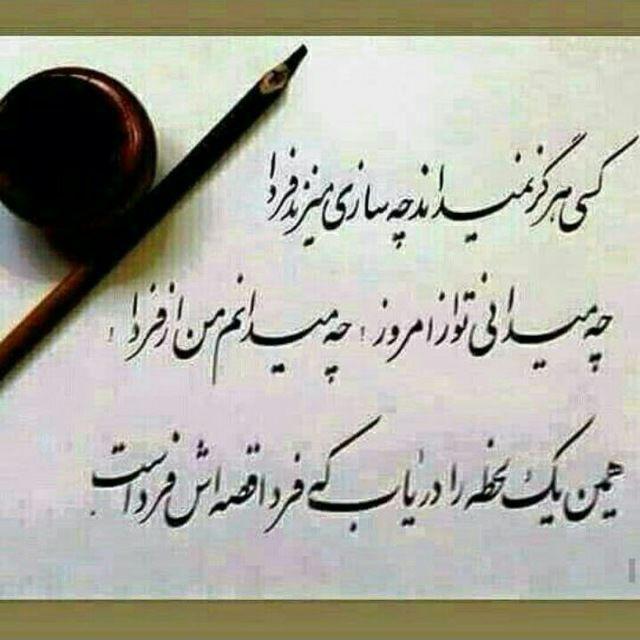 کسی هرگز نمیداند چه سازی میزند فردا
چه میدانی تو از امروز ! چه میدانم من از فردا !
همین یک لحظه را دریاب که فردا قصه اش فرداست